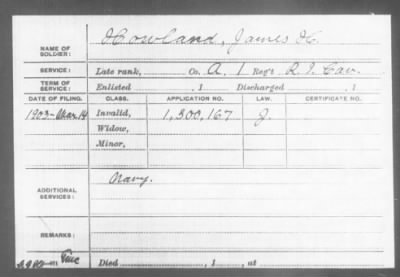 NAME OF SOLDIER: Howland, James H.
SERVICE: Late rank, Co. A, 1 Reg't R. I. Cav.
TERM OF SERVICE: Enlisted , 1 Discharged , 1
DATE OF FILING. CLASS. APPLICATION NO. LAW. CERTIFICATE NO.
1903-Mar 14 Invalid, 1,300,167 J.
Widow,
Minor,
ADDITIONAL SERVICES: Navy.
REMARKS:
Died , 1 , at